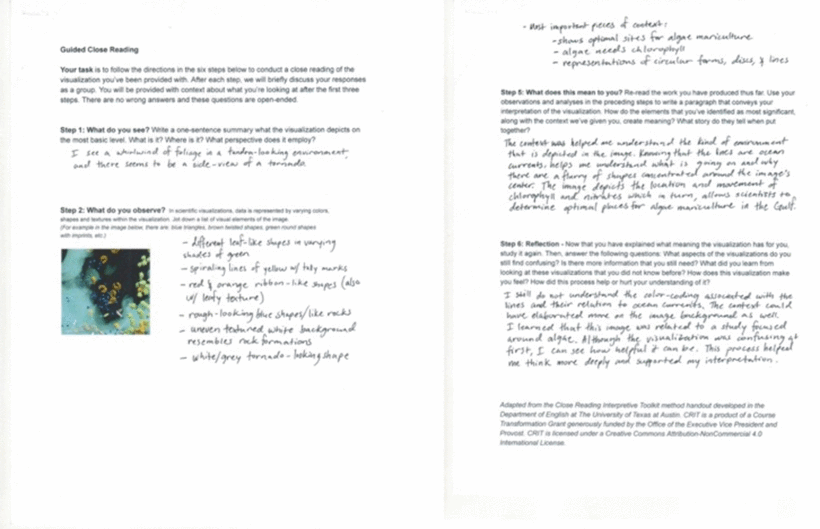 Guided Close Reading
Your task is to follow the directions in the six steps below to conduct a close reading of the
visualization you've been provided with. After each step, we will briefly discuss your responses
as a group. You will be provided with context about what you're looking at after the first three
steps. There are no wrong answers and these questions are open-ended.
Step 1: What do you see? Write a one-sentence summary what the visualization depicts on
the most basic level. What is it? Where is it? What perspective does it employ?
I see a whirlwind of foliage in a tundra-looking environment,
and there seems to be a side-view of a tornado.
Step 2: What do you observe? In scientific visualizations, data is represented by varying colors,
shapes and textures within the visualization. Jot down a list of visual elements of the image.
(For example in the image below, there are: blue triangles, brown twisted shapes, green round shapes
with imprints, etc.)
- different leaf-like shapes in varying
shades of green
- spiraling lines of yellow w/ tally marks
- red & orange ribbon-like shapes (also
w/ leafy texture)
- rough-looking blue shapes/like rocks
- uneven textured white background
resembles rock formations
- white/grey tornado-looking shape
- Most important pieces of context:
- shows optimal sites for algae mariculture
- algae needs chlorophyll
- representations of circular forms, discs, & lines
Step 5: What does this mean to you? Re-read the work you have produced thus far. Use your
observations and analyses in the preceding steps to write a paragraph that conveys your
interpretation of the visualization. How do the elements that you've identified as most significant,
along with the context we've given you, create meaning? What story do they tell when put
together?
The context was helped me understand the kind of environment
that is depicted in the image. Knowing that the lines are ocean
currents, helps me understand what is going on and why
there are a flurry of shapes concentrated around the image's
center. The image depicts the location and movement of
chlorophyll and nitrates which in turn, allows scientists to
determine optimal places for algae mariculture in the Gulf.
Step 6: Reflection - Now that you have explained what meaning the visualization has for you,
study it again. Then, answer the following questions: What aspects of the visualizations do you
still find confusing? Is there more information that you still need? What did you learn from
looking at these visualizations that you did not know before? How does this visualization make
you feel? How did this process help or hurt your understanding of it?
I still do not understand the color-coding associated with the
lines and their relation to ocean currents. The context could
have elaborated more on the image background as well.
I learned that this image was related to a study focused
around algae. Although the visualization was confusing at
first, I can see how helpful it can be. This process helped
me think more deeply and supported my interpretation.
Adapted from the Close Reading Interpretive Toolkit method handout developed in the
Department of English at The University of Texas at Austin. CRIT is a product of a Course
Transformation Grant generously funded by the Office of the Executive Vice President and
Provost. CRIT is licensed under a Creative Commons Attribution-NonCommercial 4.0
International License.